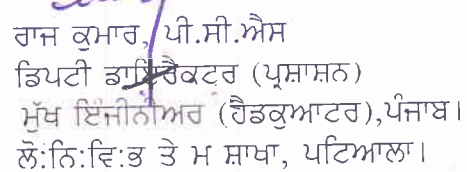 ਰਾਜ ਕੁਮਾਰ, ਪੀ.ਸੀ.ਐਸ
ਡਿਪਟੀ ਡਾਇਰੈਕਟਰ (ਪ੍ਰਸ਼ਾਸ਼ਨ)
ਮੁੱਖ ਇੰਜੀਨੀਅਰ (ਹੈਡਕੁਆਟਰ),ਪੰਜਾਬ।
ਲੋ:ਨਿ:ਵਿ:ਭ ਤੇ ਮ ਸ਼ਾਖਾ, ਪਟਿਆਲਾ।